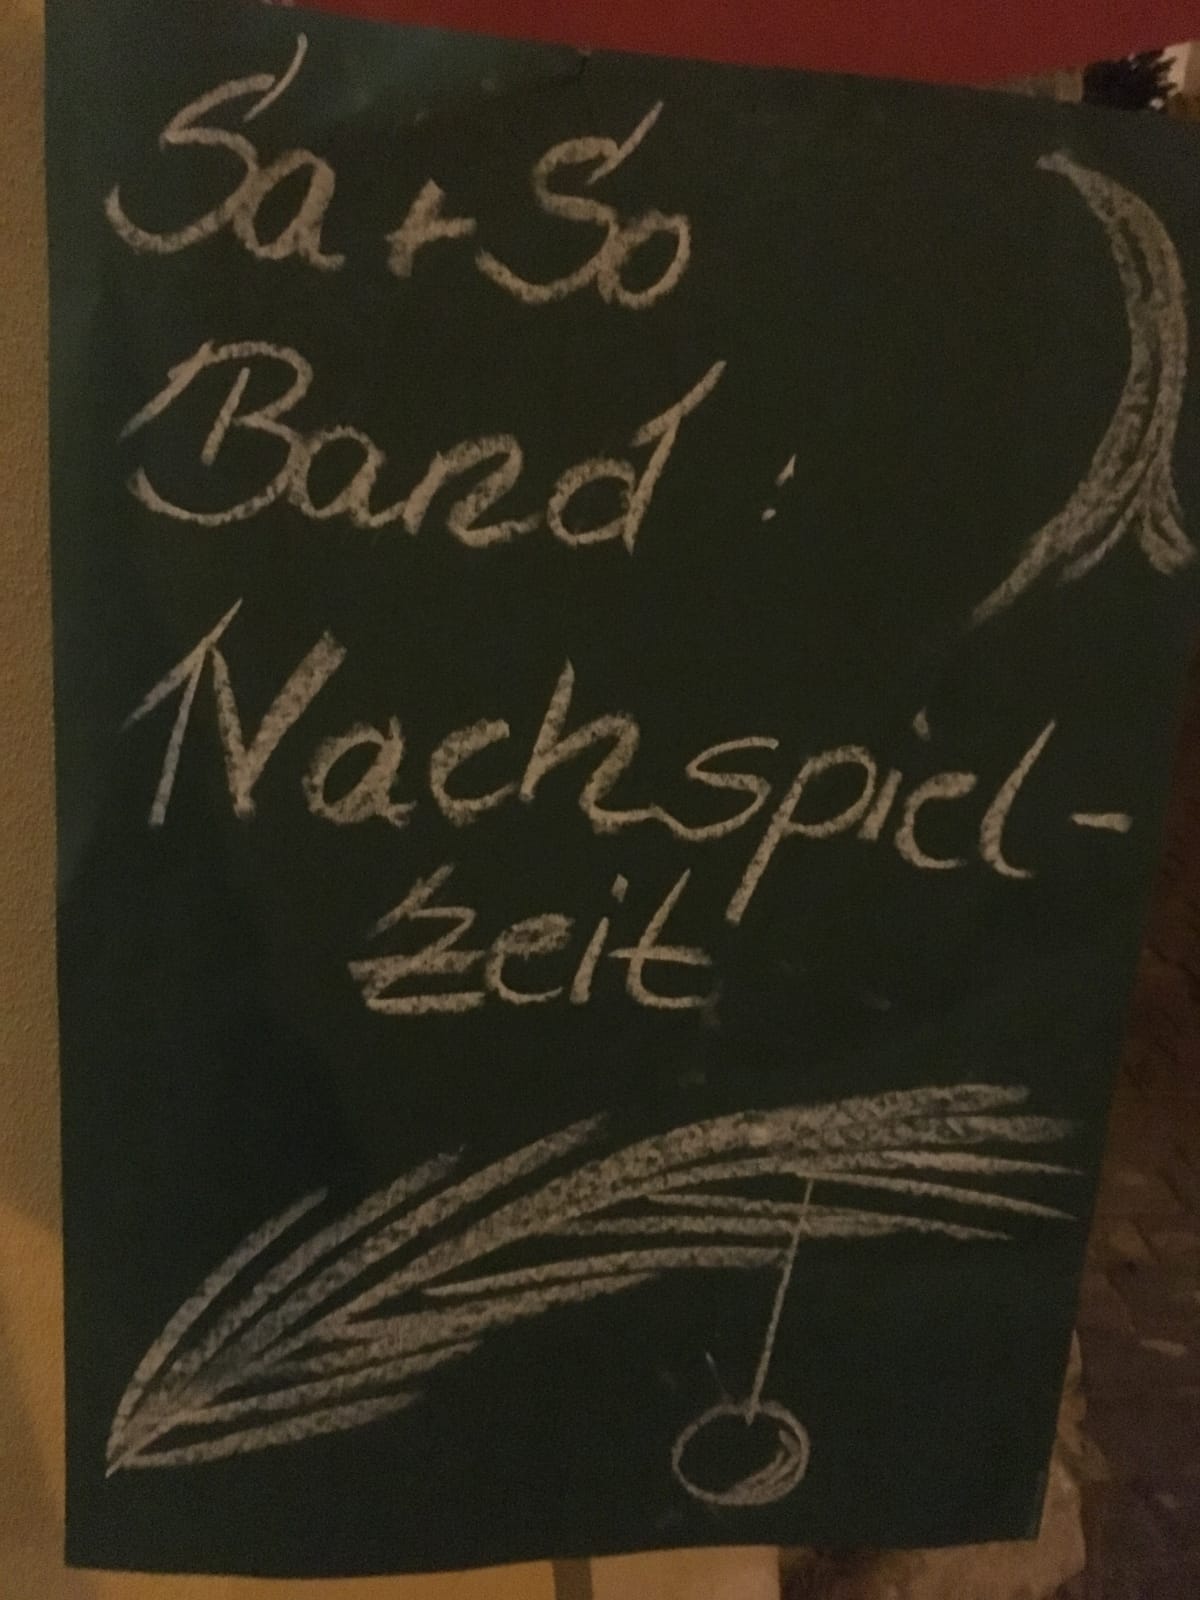 Sa + So
Band :
Nachspiel-
zeit